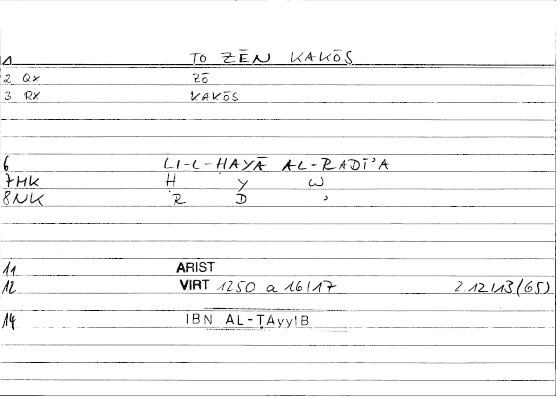 1 TO ZĒN KAKŌS
2 QX ZŌ
3 RX KAKŌS
6 LI-L-ḤAYĀ AL-RADĪ'A
7 HK Ḥ Y W
8 NK R D '
11 ARIST
12 VIRT 1250 a 16/17 2.12/13 (65)
14 IBN AL-ṬAyyIB